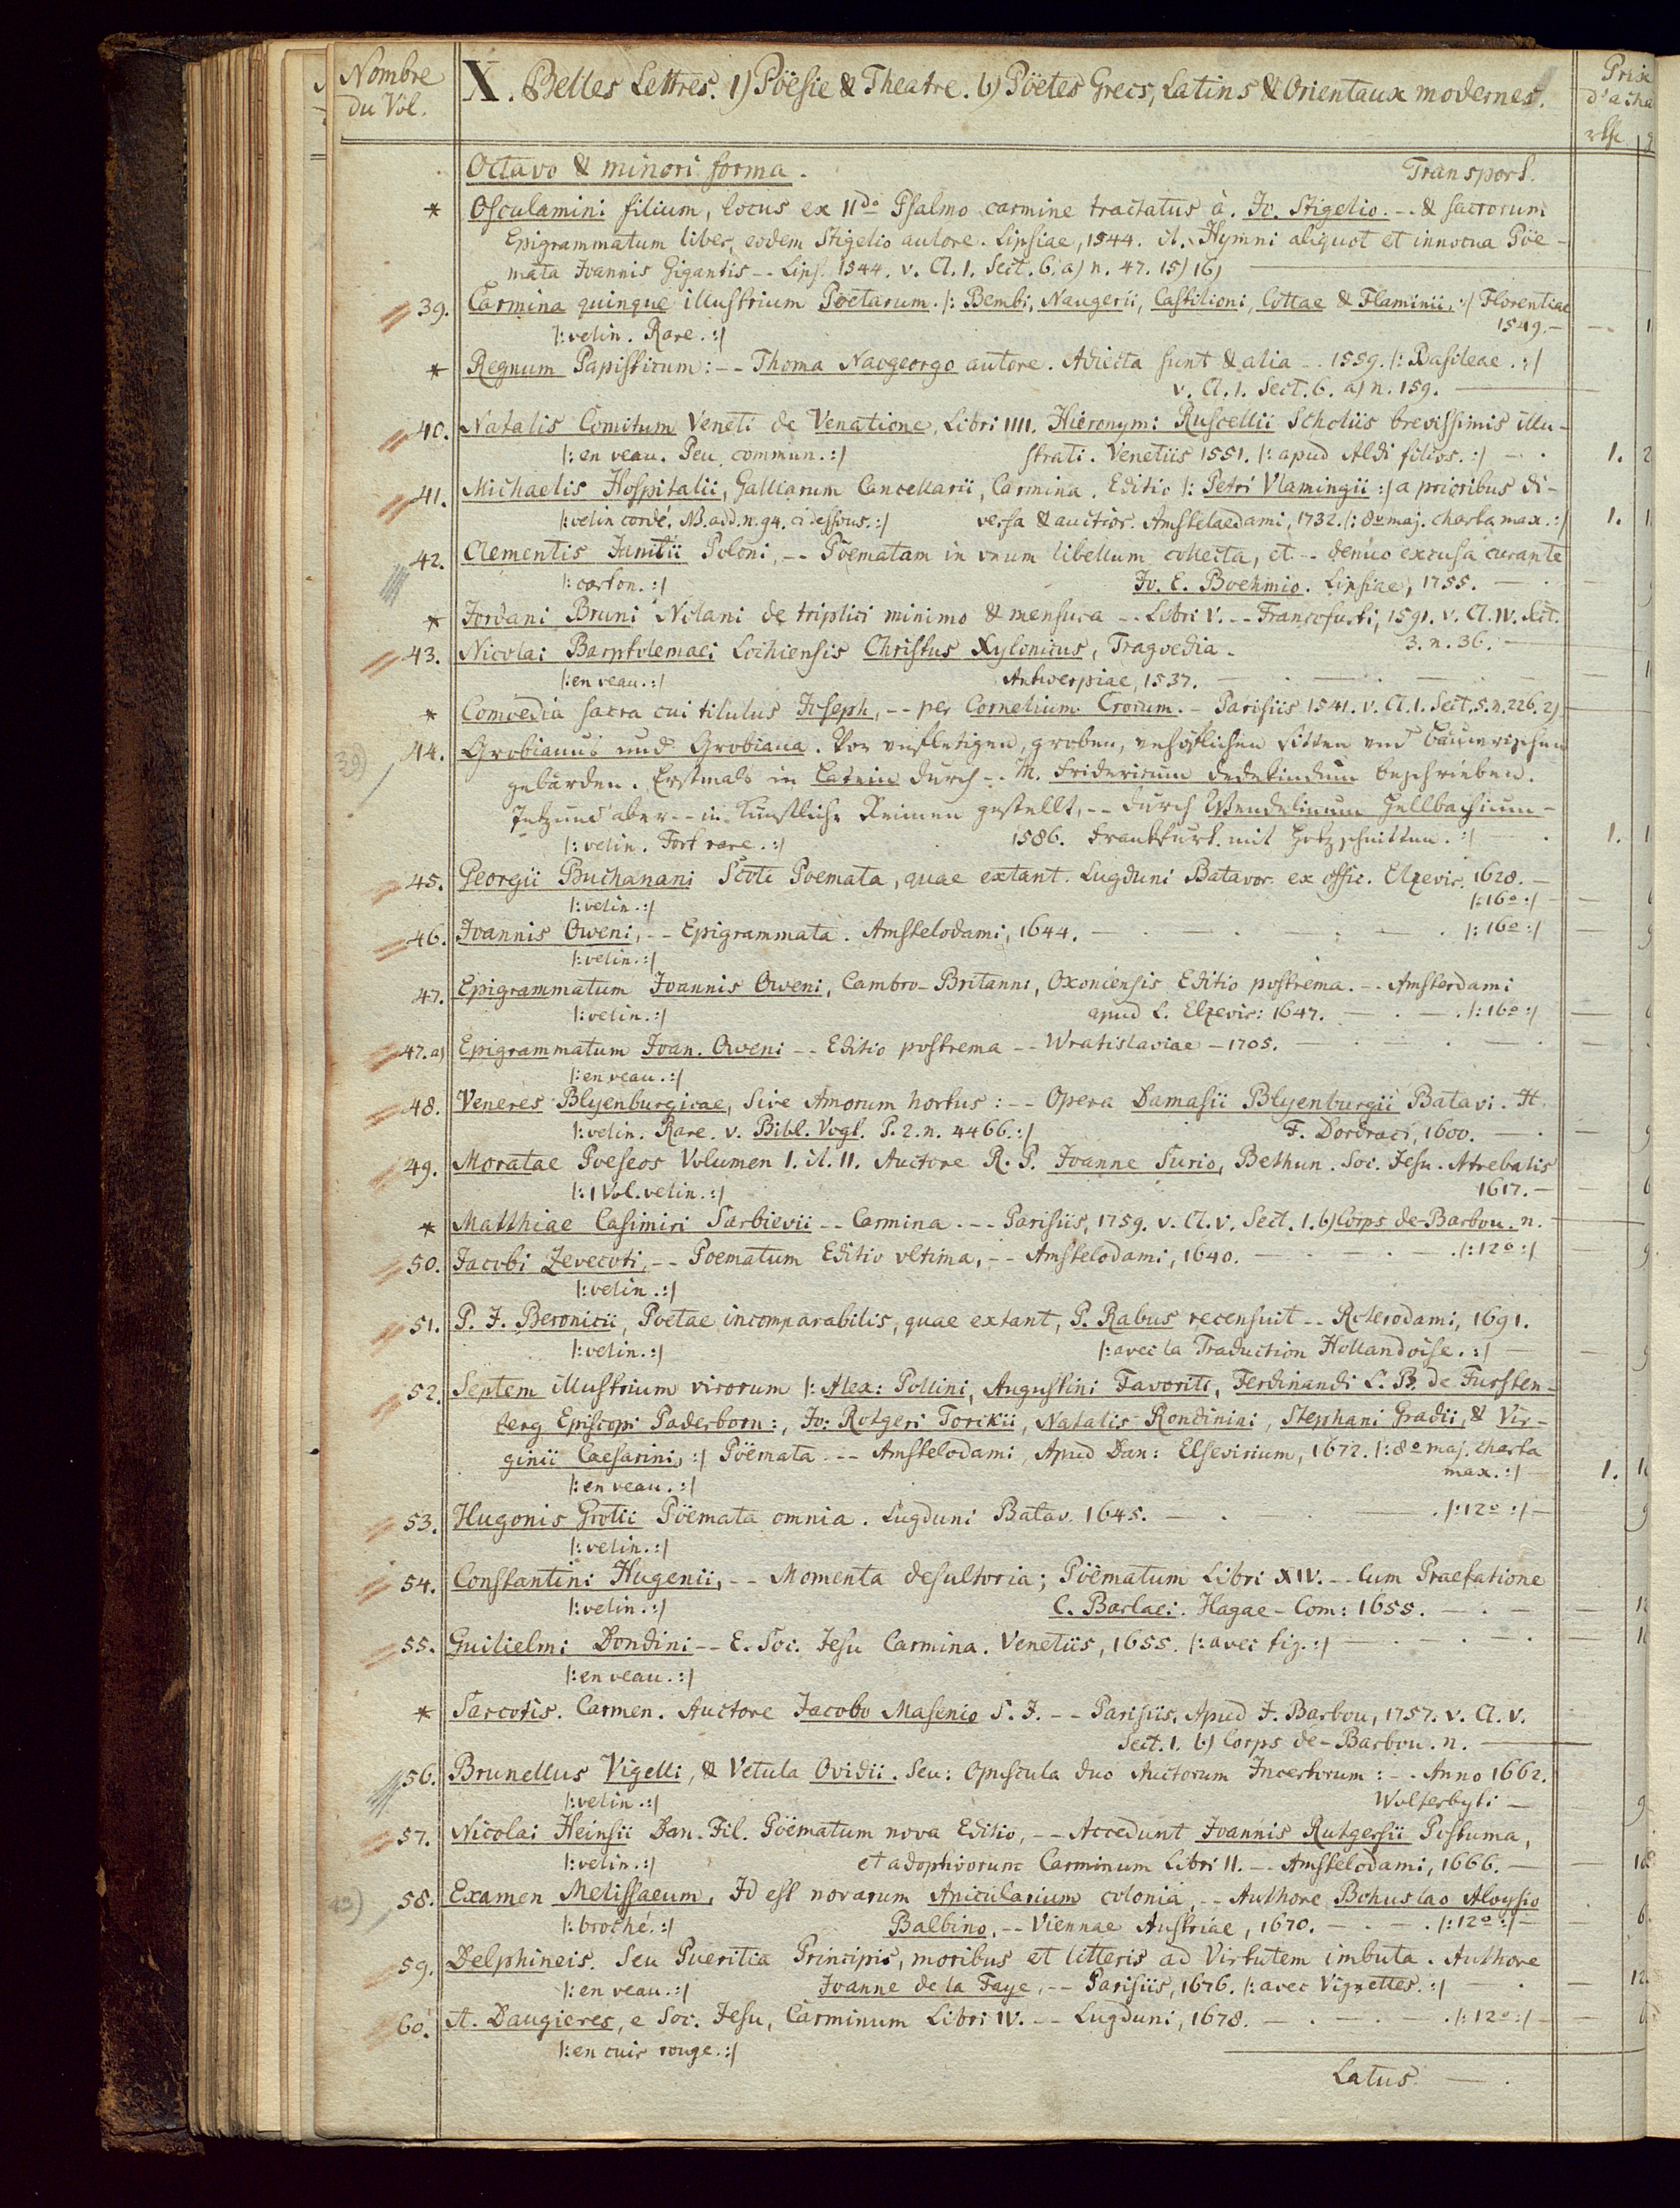 Nombre du Vol.
X. Belles Lettres. 1) Pöesie & Theatre. b) Pöetes Grecs, Latins & Orientaux modernes.
Prix d'acha
rthr. g
Octavo & minori forma. Transport.
* Osculamini filium, locus ex IIdo Psalmo carmine tractatus à. Jo. Stigelio. -- & sacrorum
Epigrammatum liber, eodem Stigelio autore. Lipsiae, 1544. it. Hymni aliquot et innocua Pöe-
mata Joannis Gigantis -- Lips. 1544. v. Cl. 1. Sect. 6. a) n. 47. 15) 16)
39. Carmina quinque illustrium Poetarum. |: Bembi, Naugerii, Castilioni, Cottae & Flaminii. :| Florentiae
|: velin. Rare. :| 1549. — 1
* Regnum Papisticum: -- Thoma Naogeorgo autore. Adiecta sunt & alia -- 1559. |: Basileae. :|
v. Cl. 1. Sect. 6. a) n. 159.
40. Natalis Comitum Veneti de Venatione, Libri IIII. Hieronymi Ruscellii Scholiis brevissimis illu-
|: en veau. Peu commun. :| strati. Venetiis 1551. |: apud Aldi filios. :| — 1. 2
41. Michaelis Hospitalii, Galliarum Cancellarii, Carmina. Editio |: Petri Vlamingii :| a prioribus di-
|: velin cordé. NB. add. n. 94. ci dessous. :| versa & auctior. Amstelaedami, 1732. |: 8o maj. charta max. :| 1. 1
42. Clementis Janitii Poloni, -- Poematam in vnum libellum collecta, et -- denuo excusa curante
|: carton. :| Jo. E. Boehmio. Lipsiae, 1755. —
* Jordani Bruni Nolani de triplici minimo & mensura -- Libri V. -- Francofurti, 1591. v. Cl. IV. Sect.
3. n. 36. —
43. Nicolai Barptolemaei Lochiensis Christus Xylonicus, Tragoedia.
|: en veau. :| Antwerpiae, 1537. — 1
* Comoedia sacra cui titulus Joseph, -- per Cornelium Crocum. - Parisiis 1541. v. Cl. 1. Sect. 5. n. 226. 2)
39)
44. Grobianus und Grobiana. Von vnfletigen, groben, vnhöflichen sitten vnd bäuerischen
gebärden. Erstmals in Latein durch -- M. Fridericum Dedekindum beschrieben.
Jetzund aber -- in künstliche Reimen gestellt, -- durch Wendelinum Hellbachium -
|: velin. Fort rare. :| 1586. Frankfurt. mit Holzschnitten. :| — 1. 1
45. Georgii Buchanani Scoti Poemata, quae extant. Lugduni Batavor. ex offic. Elzevir. 1628. —
|: velin. :| |: 16o :| —
46. Joannis Oweni, -- Epigrammata. Amstelodami, 1644. — |: 16o :| — 9
|: velin. :|
47. Epigrammatum Joannis Oweni, Cambro-Britanni, Oxoniensis Editio postrema. -- Amsterdami
|: velin. :| apud L. Elzevir: 1647. — |: 16o :| —
47. a) Epigrammatum Joan. Oweni -- Editio postrema -- Wratislaviae - 1705. —
|: en veau. :|
48. Veneres Blyenburgicae, sive Amorum hortus: -- Opera Damasii Blyenburgii Batavi. It.
|: velin. Rare. v. Bibl. Vogt. P. 2. n. 4466. :| F. Dordraci, 1600. — 9
49. Moratae Poeseos Volumen I. it. II. Auctore R. P. Joanne Surio, Bethun. Soc. Jesu. Atrebatis
|: 1 Vol. velin. :| 1617. — 6
* Matthiae Casimiri Sarbievii -- Carmina. -- Parisiis, 1759. v. Cl. V. Sect. 1. b) Corps de Barbou. n. —
50. Jacobi Zevecoti, -- Poematum Editio vltima, -- Amstelodami, 1640. — |: 12o :| — 9
|: velin. :|
51. P. J. Beronicii, Poetae incomparabilis, quae extant, P. Rabus recensuit -- Roterodami, 1691.
|: velin. :| |: avec la Traduction Hollandoise. :| — 9
52. Septem illustrium virorum |: Alex: Pollini, Augustini Favoriti, Ferdinandi L. B. de Fursten-
berg Episcopi Paderborn:, Jo: Rotgeri Torckii, Natalis Rondinini, Stephani Gradii, & Vir-
ginii Caesarini, :| Pöemata -- Amstelodami, Apud Dan: Elsevirium, 1672. |: 8o maj. charta
|: en veau. :| max. :| — 1. 1
53. Hugonis Grotii Pöemata omnia. Lugduni Batav. 1645. — |: 12o :| — 9
|: velin. :|
54. Constantini Hugenii, -- Momenta desultoria; Pöematum Libri XIV. -- Cum Praefatione
|: velin. :| C. Barlaei. Hagae-Com: 1655. — 1
55. Guilielmi Dondini -- E. Soc. Jesu Carmina. Venetiis, 1655. |: avec fig. :| — 1
|: en veau. :|
* Sarcotis. Carmen. Auctore Jacobo Masenio S. J. -- Parisiis, Apud J. Barbou, 1757. v. Cl. V.
Sect. 1. b) Corps de-Barbou. n. —
56. Brunellus Vigelli, & Vetula Ovidii. Seu: Opuscula duo Auctorum Incertorum: -- Anno 1662.
|: velin. :| Wolferbyti — 9
57. Nicolai Heinsii Dan. Fil. Pöematum nova Editio, -- Accedunt Joannis Rutgersii Postuma,
|: velin. :| et adoptivorum Carminum Libri II. -- Amstelodami, 1666. — 10
58. Examen Melissaeum, Id est novarum Anicularium colonia, -- Authore Bohuslao Aloysio
|: broché. :| Balbino, -- Viennae Austriae, 1670. — |: 12o :| — 6.
59. Delphineis. Seu Pueritia Principis, moribus et litteris ad Virtutem imbuta. Authore
|: en veau. :| Joanne de la Faye, -- Parisiis, 1676. |: avec Vignettes. :| — 12.
60. A. Daugieres, e Soc. Jesu, Carminum Libri IV. -- Lugduni, 1678. — |: 12o :| — 6
|: en cuir rouge. :|
Latus. —